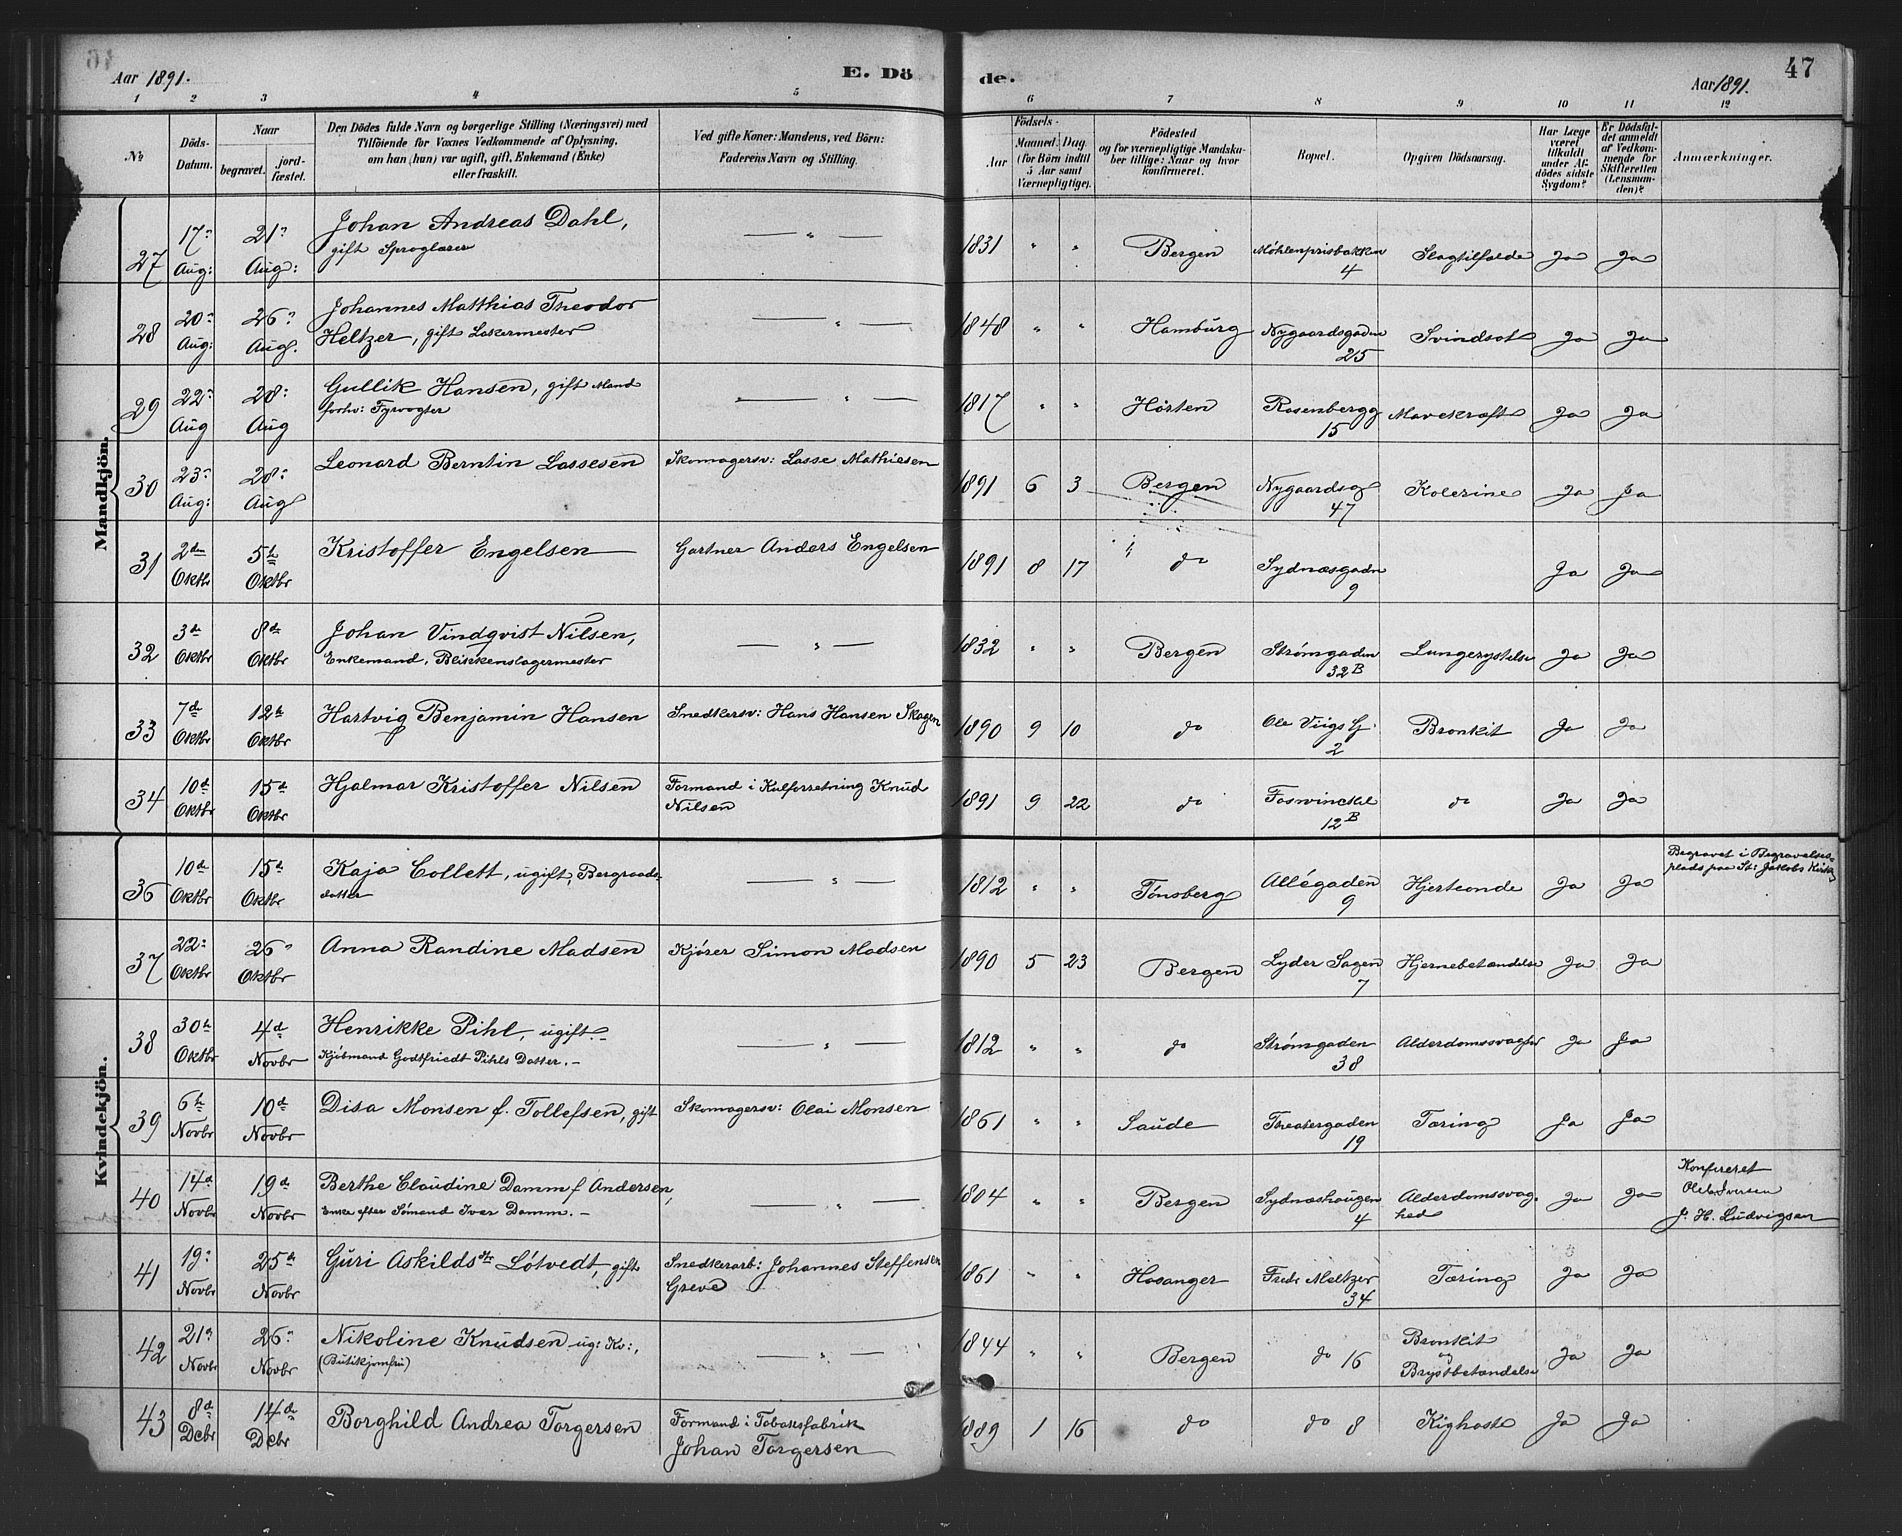 Aar 1891. E. Dö de. Aar 1891. 47
1 2 3 4 5 6 7 8 9 10 11 12
No
Döds-Datum.
Naar
begravet. jordfæstet.
Den Dödes fulde Navn og borgerlige Stilling (Næringsvei) med
Tilföiende for Voxnes Vedkommende af Oplysning,
om han (hun) var ugift, gift, Enkemand (Enke)
eller fraskilt.
Ved gifte Koner: Mandens, ved Börn:
Faderens Navn og Stilling.
Födsels-
Aar Maaned Dag
(for Börn indtil
5 Aar samt
Værnepligtige).
Födested
og for værnepligtige Mandskaber tillige: Naar og hvor
konfirmeret.
Bopæl.
Opgiven Dödsaarsag.
Har Læge
været
tilkaldt
under Afdödes sidste
Sygdom?
Er Dödsfaldet anmeldt
af Vedkommende for
Skifteretten
(Lensmanden)?
Anmærkninger.
Mandkjön.
27 17 Aug: 21 Aug: Johan Andreas Dahl, — " — 1831 " " Bergen Møhlenprisbakken 4 Slagtilfælde Ja Ja
gift Sproglærer
28 20 Aug: 26 Aug. Johannes Matthias Theodor — " — 1848 " " Hamburg Nygaardsgaden 25 Svindsot Ja Ja
Heltzer, gift Lakermester
29 22 Aug 28 Aug Gullik Hansen, gift Mand — " — 1817 " " Horten Rosenbergg 15 Mavekræft Ja Ja
forhv: Fyrvogter
30 23 Aug: 28 Aug Leonard Berntin Lassesen Skomagersv: Lasse Mathiesen 1891 6 3 Bergen Nygaardsg 47 Kolerine Ja Ja
31 2den Oktbr 5te Oktbr Kristoffer Engelsen Gartner Anders Engelsen 1891 8 17 do Sydnæsgadn 9 Ja Ja
32 3de Oktbr 8de Oktbr Johan Vindqvist Nilsen, — " — 1832 " " Bergen Strømgaden 32B Ja Ja
Enkemand, Blikkenslagermester
33 7de Oktbr 12te Oktbr Hartvig Benjamin Hansen Snedkersv: Hans Hansen Skagen 1890 9 10 do Ole Viigs G: 2 Bronkit Ja Ja
34 10de Oktbr 15de Oktbr Hjalmar Kristoffer Nilsen Formand i Kulforretning Knud
Nilsen 1891 9 22 do Foswinckel 12B do Ja Ja
Kvindekjön.
36 10de Oktbr 15de Oktbr Kaja Collett, ugift, Bergraads-
datter — " — 1812 " " Tønsberg Allégaden 9 Hjerteonde Ja Ja Begravet i Begravelses-
plads paa St: Jakobs Kirkeg
37 22 Oktbr 26 Oktbr Anna Randine Madsen Kjører Simon Madsen 1890 5 23 Bergen Lyder Sagen 7 Hjernebetændelse Ja Ja
38 30te Oktbr 4de Novbr Henrikke Pihl, ugift.- — " — 1812 " " do Strømgaden 38 Alderdomssvaghed Ja Ja
Kjöbmand Godtfriedt Pihls Datter.-
39 6te Novbr 10de Novbr Disa Monsen f. Tollefsen, gift Skomagersv: Olai Monsen 1861 " " Saude Theatergaden 19 Tæring Ja Ja
40 14de Novbr 19de Novbr Berthe Claudine Damm f Andersen, — " — 1804 " " Bergen Sydnæshaugen 4 Alderdomssvag-
hed Ja Ja Konfereret
Iversen
J. H. Ludvigsen
Enke efter Sømand Ivar Damm.-
41 19 Novbr 25de Novbr Guri Askildsdtr Løtvedt, gift Snedkerarb: Johannes Steffensen
Greve 1861 " " Hosanger Fredr Meltzer 34 Tæring Ja Ja
42 21 Novbr 26 Novbr Nikoline Knudsen ug: Kv:, — " — 1844 " " Bergen do 16 Bronkit
og
Brystbetændelse Ja Ja
(Butikjomfru)
43 8de Dcbr 14de Dcbr Borghild Andrea Torgersen Formand i Tobaksfabrik
Johan Torgersen 1889 1 16 do do 8 Kighoste Ja Ja